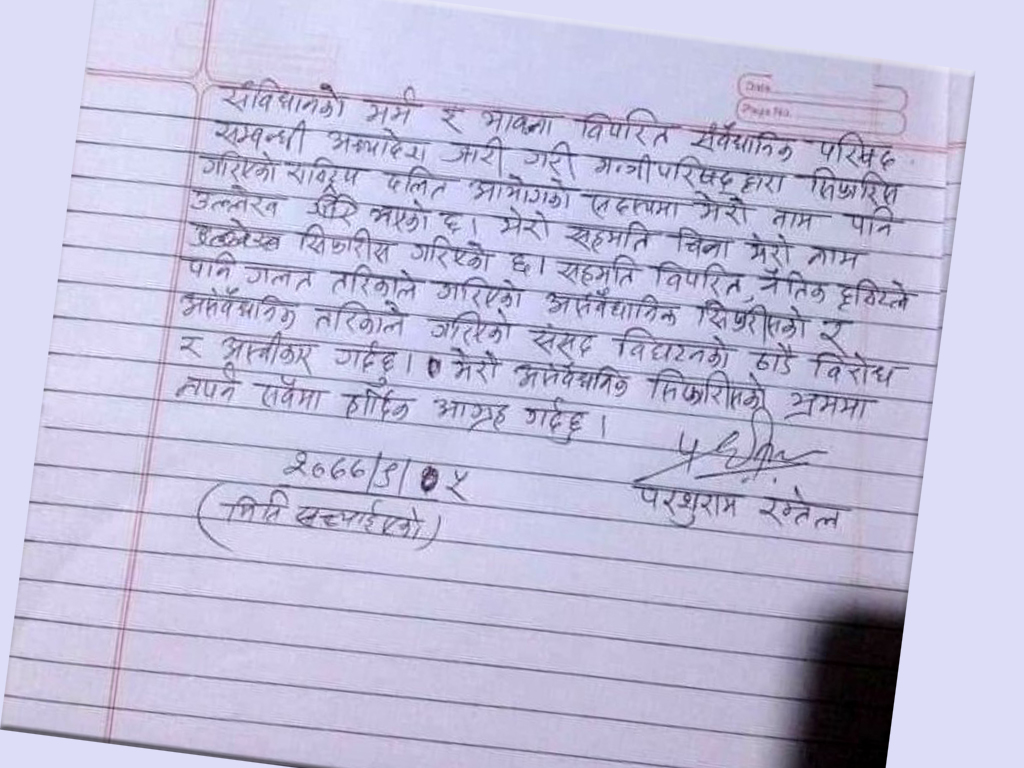 Date
Page No.
संविधानको मर्म र भावना विपरित संवैधानिक परिषद
सम्बन्धी अध्यादेश जारी गरी मन्त्रीपरिषद् द्वारा सिफारिस
गरिएको राष्ट्रिय दलित आयोगको सदस्यमा मेरो नाम पनि
उल्लेख भएको छ। मेरो सहमति विना मेरो नाम
सिफारीस गरिएको छ। सहमति विपरित, नैतिक दृष्टिले
पनि गलत तरिकाले गरिएको असंवैधानिक सिफारीसको र
असंवैधानिक तरिकाले गरिएको संसद विघटनको ठाडै विरोध
र अस्वीकार गर्दछु। मेरो असंवैधानिक सिफारीसको भ्रममा
नपर्न सबैमा हार्दिक आग्रह गर्दछु।
२०७७/९/०५
(मिति सच्याईएको)
परशुराम रम्तेल